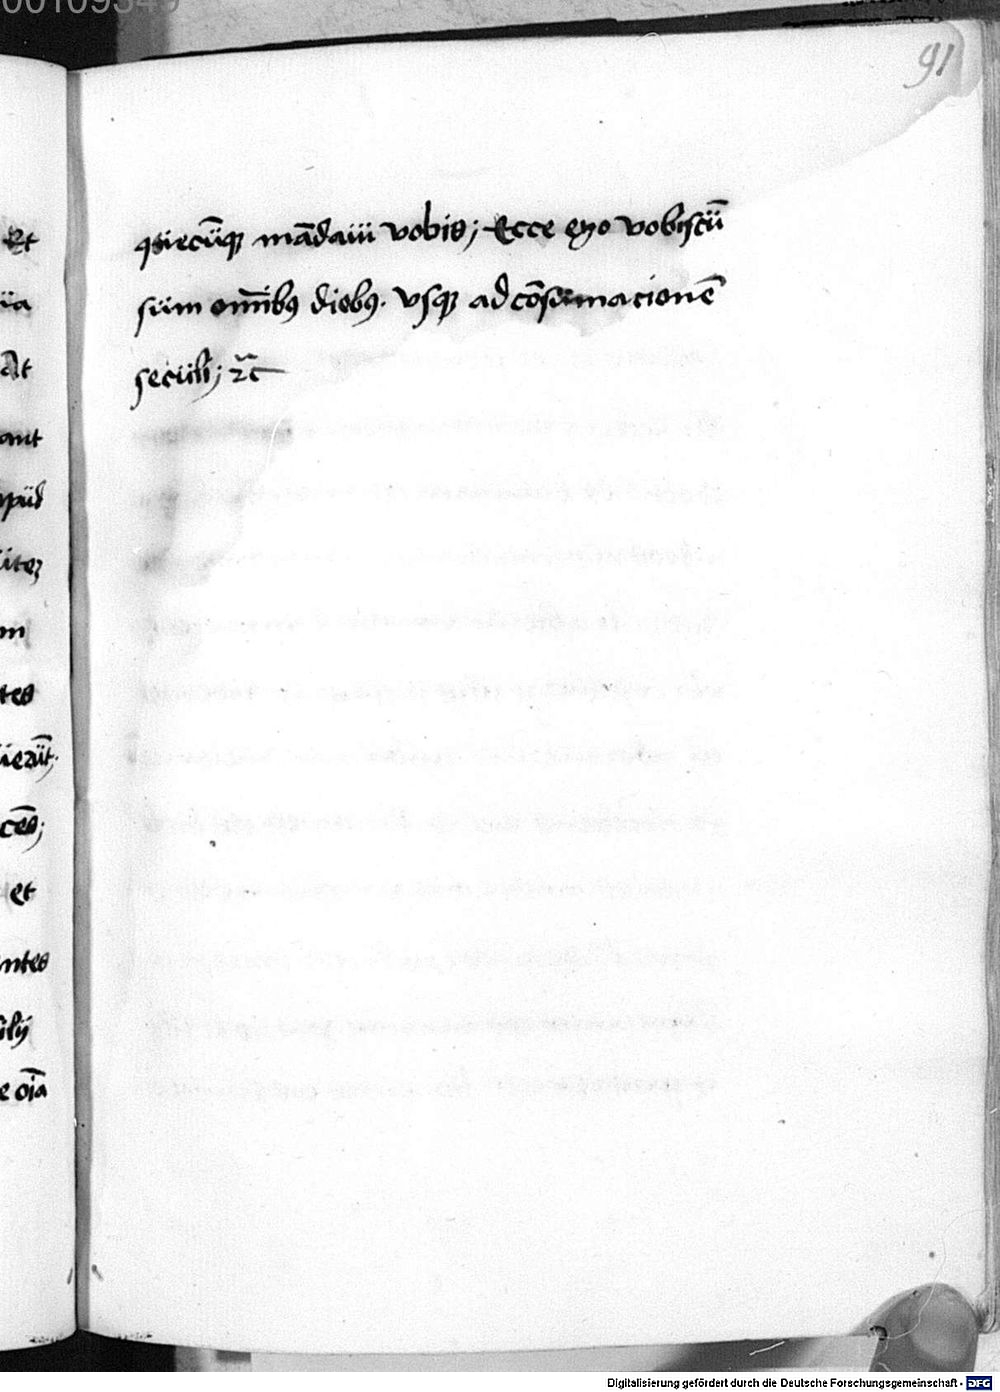 00109349
91
Et
üa
At
ant
apüd
üitez
m
tes
ierūt.
cēs;
et
ntes
ülij
e oīa
quecūqꝫ mādaui vobis; Ecce ego vobiscū
süm omībꝰ diebꝰ. vsqꝫ ad cōsumacionē
secüli; ⁊c̄
Digitalisierung gefördert durch die Deutsche Forschungsgemeinschaft - DFG